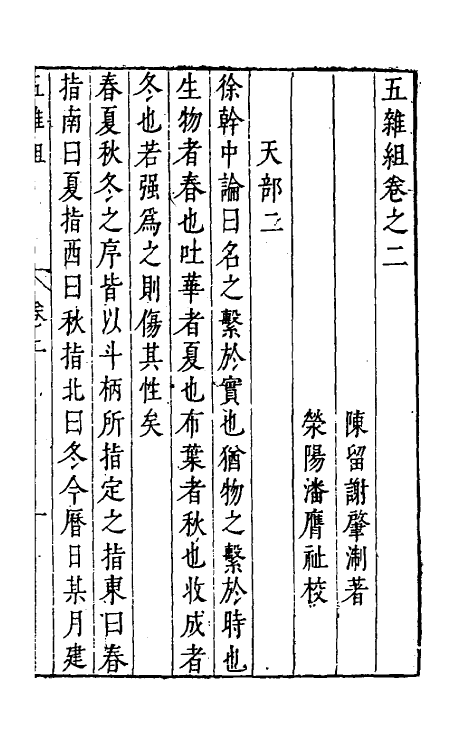 五雜組卷之二
陳留謝肇淛著
滎陽潘膺祉校
天部二
徐幹中論曰名之繫於實也猶物之繫於時也
生物者春也吐華者夏也布葉者秋也收成者
冬也若强爲之則傷其性矣
春夏秋冬之序皆以斗柄所指定之指東曰春
指南曰夏指西曰秋指北曰冬今曆日某月建
五雜組 卷二 一